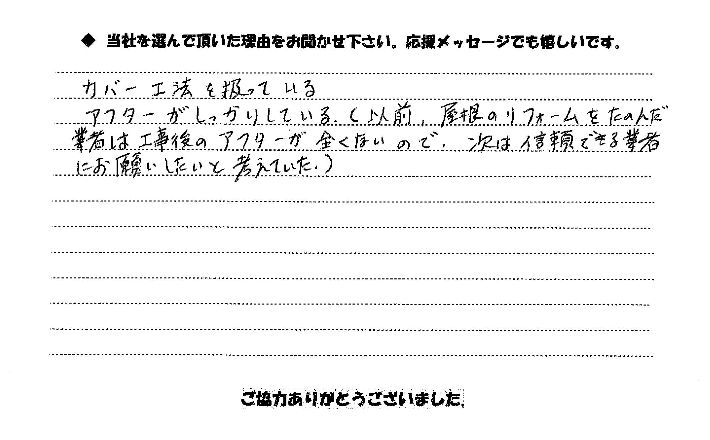 ◆ 当社を選んで頂いた理由をお聞かせ下さい。応援メッセージでも嬉しいです。
カバー工法を扱っている
アフターがしっかりしている。(以前、屋根のリフォームをたのんだ
業者は工事後のアフターが全くないので、次は信頼できる業者
にお願いしたいと考えていた。)
ご協力ありがとうございました。